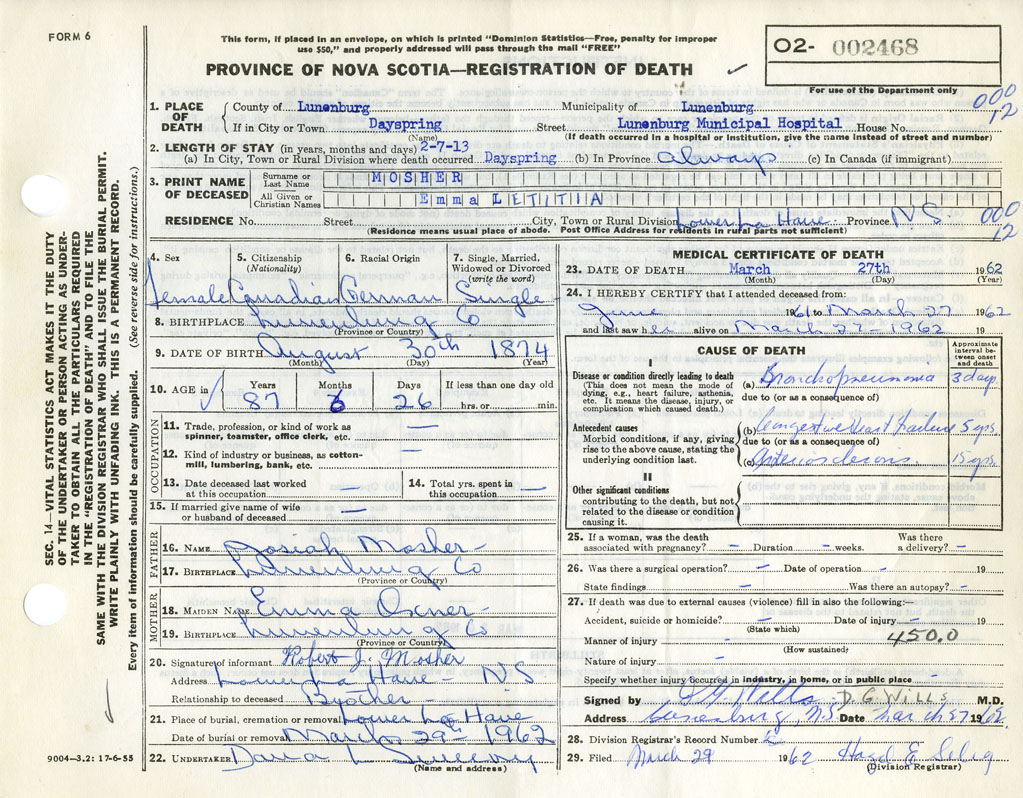 FORM 6
This form, if placed in an envelope, on which is printed "Dominion Statistics—Free, penalty for improper
use $50," and properly addressed will pass through the mail "FREE"
O2- 002468
PROVINCE OF NOVA SCOTIA—REGISTRATION OF DEATH
For use of the Department only
1. PLACE OF DEATH
County of Lunenburg Municipality of Lunenburg
000
12
If in City or Town Dayspring Street Lunenburg Municipal Hospital House No.
(Name) (If death occurred in a hospital or institution, give the name instead of street and number)
2. LENGTH OF STAY (in years, months and days) 2-7-13
(a) In City, Town or Rural Division where death occurred Dayspring (b) In Province Always (c) In Canada (if immigrant)
3. PRINT NAME OF DECEASED
Surname or Last Name MOSHER
All Given or Christian Names Emma LETITIA
RESIDENCE No. Street City, Town or Rural Division Lower La Have Province N.S.
000
12
(Residence means usual place of abode. Post Office Address for residents in rural parts not sufficient)
4. Sex 5. Citizenship (Nationality) 6. Racial Origin 7. Single, Married, Widowed or Divorced (write the word)
female Canadian German Single
8. BIRTHPLACE Lunenburg Co
(Province or Country)
9. DATE OF BIRTH August 30th 1874
(Month) (Day) (Year)
10. AGE in Years Months Days If less than one day old
87 6 26 hrs. or min.
OCCUPATION
11. Trade, profession, or kind of work as spinner, teamster, office clerk, etc. —
12. Kind of industry or business, as cotton-mill, lumbering, bank, etc. —
13. Date deceased last worked at this occupation — 14. Total yrs. spent in this occupation —
15. If married give name of wife or husband of deceased —
FATHER
16. NAME Josiah Mosher
17. BIRTHPLACE Lunenburg Co
(Province or Country)
MOTHER
18. MAIDEN NAME Emma Oxner
19. BIRTHPLACE Lunenburg Co
(Province or Country)
20. Signature of informant Robert J. Mosher
Address Lower La Have N S
Relationship to deceased Brother
21. Place of burial, cremation or removal Lower La Have
Date of burial or removal March 29th 1962
22. UNDERTAKER Sweeny
(Name and address)
MEDICAL CERTIFICATE OF DEATH
23. DATE OF DEATH March 27th 1962
(Month) (Day) (Year)
24. I HEREBY CERTIFY that I attended deceased from:
June 1961 to March 27 1962
and last saw her alive on March 27-1962 19
CAUSE OF DEATH
Approximate interval between onset and death
I
Disease or condition directly leading to death
(This does not mean the mode of dying, e.g., heart failure, asthenia, etc. It means the disease, injury, or complication which caused death.)
(a) Bronchopneumonia 3 days
due to (or as a consequence of)
Antecedent causes
Morbid conditions, if any, giving rise to the above cause, stating the underlying condition last.
(b) Congestive Heart Failure 5 yrs
due to (or as a consequence of)
(c) Arteriosclerosis 15 yrs
II
Other significant conditions
contributing to the death, but not related to the disease or condition causing it.
25. If a woman, was the death associated with pregnancy? — Duration — weeks. Was there a delivery? —
26. Was there a surgical operation? — Date of operation — 19
State findings — Was there an autopsy? -
27. If death was due to external causes (violence) fill in also the following:—
Accident, suicide or homicide? — Date of injury — 19
(State which)
Manner of injury — 450.0
(How sustained)
Nature of injury —
Specify whether injury occurred in industry, in home, or in public place —
Signed by D.G. Wills D. G. WILLS M.D.
Address Lunenburg, N.S. Date March 27 1962
28. Division Registrar's Record Number
29. Filed March 29 1962 E. Selig
(Division Registrar)
SEC. 14—VITAL STATISTICS ACT MAKES IT THE DUTY
OF THE UNDERTAKER OR PERSON ACTING AS UNDER-
TAKER TO OBTAIN ALL THE PARTICULARS REQUIRED
IN THE "REGISTRATION OF DEATH" AND TO FILE THE
SAME WITH THE DIVISION REGISTRAR WHO SHALL ISSUE THE BURIAL PERMIT.
WRITE PLAINLY WITH UNFADING INK. THIS IS A PERMANENT RECORD.
Every item of information should be carefully supplied. (See reverse side for instructions.)
9004—3.2: 17-6-55